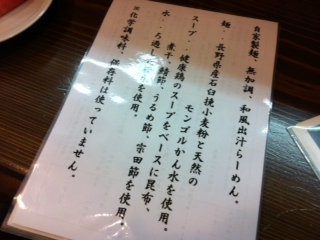 自家製麺、無加調、和風出汁らーめん。
麺・・長野県産石臼挽小麦粉と天然の
モンゴルかん水を使用。
スープ・・健康鶏のスープをベースに昆布、
煮干、鯖節、うるめ節、宗田節を使用。
水・・ろ過した を使用。
※化学調味料、保存料は使っていません。